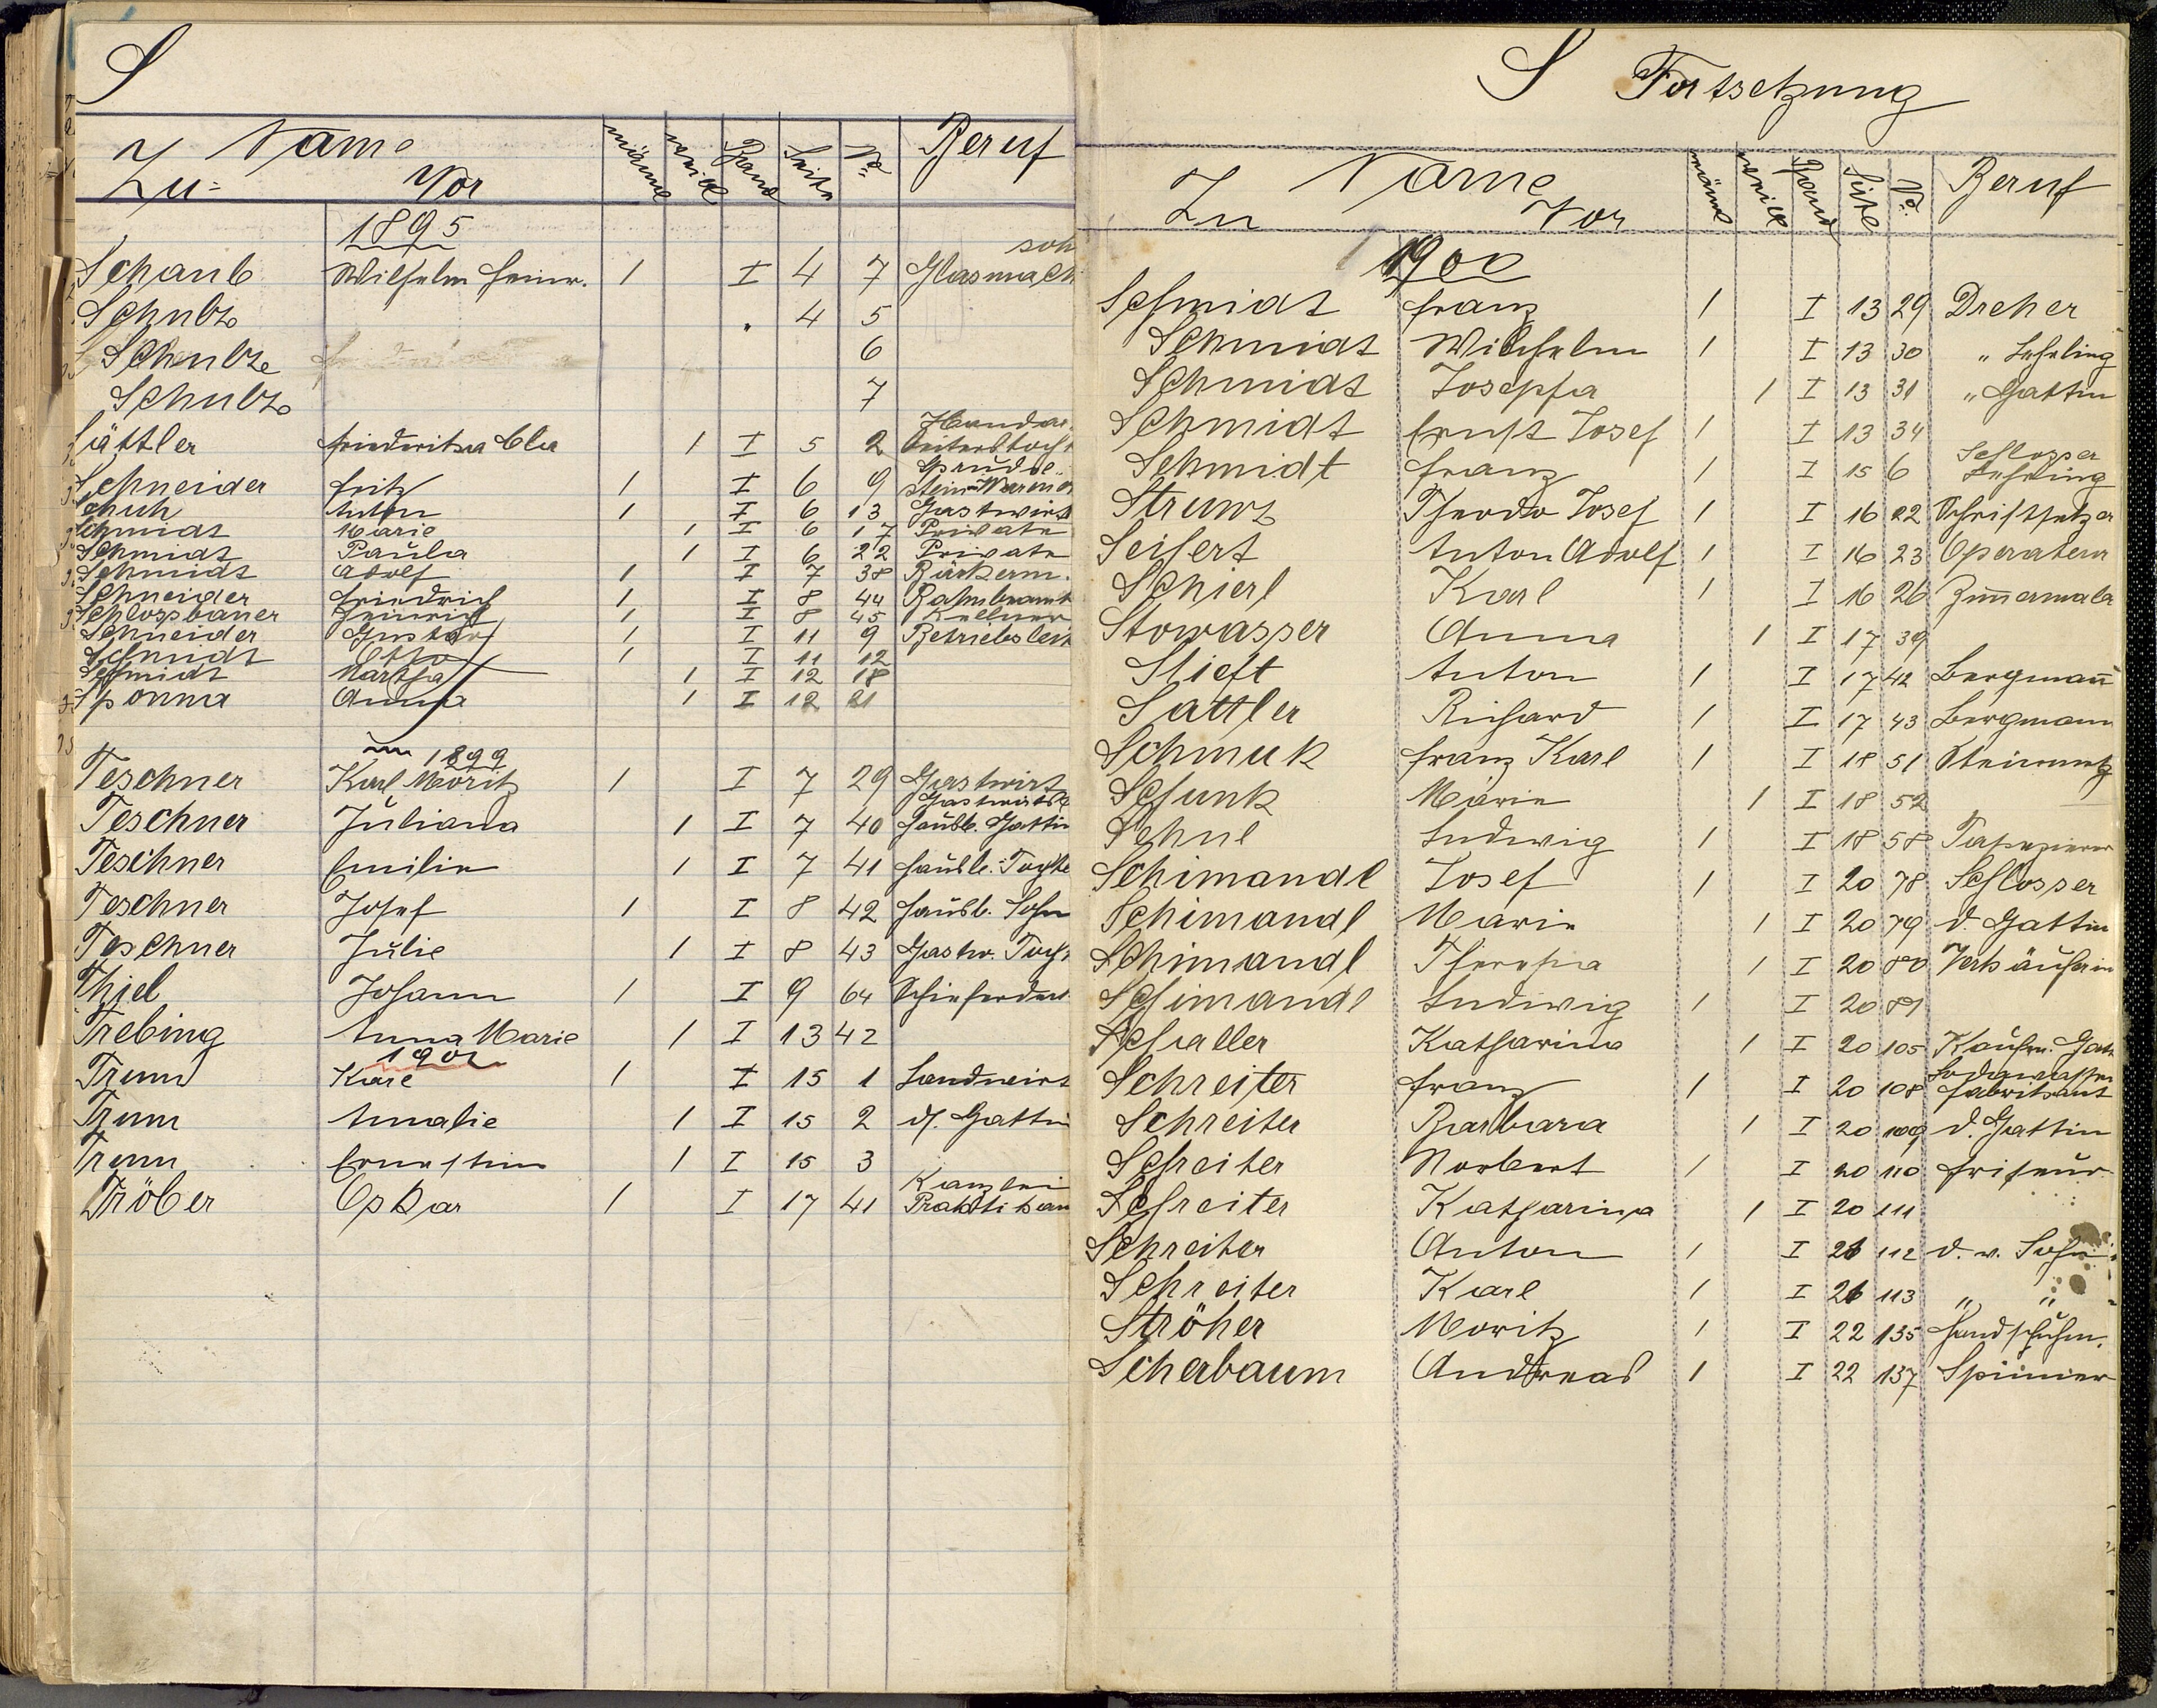 S
Name männl weibl Band Seite No. Beruf
Zu= Vor
1895
Schaub Wilhelm Heinr. 1 I 4 7 Glasmach sohn
Schulze " 4 5
Schulze 6
Schulze 7
Sättler Friederika Cla 1 I 5 2 Handar beiterstocht
Schneider Fritz 1 I 6 9
Schuh Anton 1 I 6 13 Gastwirt
Schmidt Marie 1 I 6 17 Private
Schmidt Paula 1 I 6 22 Private
Schmidt Adolf 1 I 7 38 Bäckerm.
Schneider Friedrich 1 I 8 44 Bahnbeamt
Schlossbauer Heinrich 1 I 8 45 Kellner
Schneider Gustav 1 I 11 9 Betriebsleit
Schmidt Otto 1 I 11 12
Schmidt Martha 1 I 12 18
Sponna Anna 1 I 12 21
1899
Teschner Karl Moritz 1 I 7 29 Gastwirt
Teschner Juliana 1 I 7 40 Gastwirts Hausb. Gattin
Teschner Emilie 1 I 7 41 Hausb. Tochte
Teschner Josef 1 I 8 42 Hausb. Sohn
Teschner Julie 1 I 8 43 Gastw. Toch
Thiel Johann 1 I 9 64 Schieferdeck
Trebing Anna Marie 1 I 13 42
1902
Trum Karl 1 I 15 1 Landwirt
Trum Amalie 1 I 15 2 d. Gattin
Trum Ernestine 1 I 15 3
Tröber Oskar 1 I 17 41 Kanzlei Praktikan
S Fortsetzung
Name männl weibl Band Seite No. Beruf
Zu Vor
1900
Schmidt Franz 1 I 13 29 Dreher
Schmidt Wilhelm 1 I 13 30 " Lehrling
Schmidt Josepha 1 I 13 31 " Gattin
Schmidt Ernst Josef 1 I 13 34
Schmidt Franz 1 I 15 6 Schlosser Lehrling
Strunz Theodor Josef 1 I 16 22 Schriftsetzer
Seifert Anton Adolf 1 I 16 23 Operateur
Schierl Karl 1 I 16 26 Zimmermaler
Stowasser Anna 1 I 17 39
Stieft Anton 1 I 17 42 Bergmann
Sattler Richard 1 I 17 43 Bergmann
Schmuk Franz Karl 1 I 18 51 Steinmetz
Schunk Marie 1 I 18 52
Ludwig 1 I 18 58 Tapezierer
Schimandl Josef 1 I 20 78 Schlosser
Schimandl Marie 1 I 20 79 d. Gattin
Schimandl Theresia 1 I 20 80 Verkäuferin
Schimandl Ludwig 1 I 20 81
Schaller Katharina 1 I 20 105 Kaufm. Gatt
Schreiter Franz 1 I 20 108 Sodawasser fabrikant
Schreiter Barbara 1 I 20 109 d. Gattin
Schreiter Norbert 1 I 20 110 Friseur
Schreiter Katharina 1 I 20 111
Schreiter Anton 1 I 21 112 d. v. Sohn
Schreiter Karl 1 I 21 113 " "
Ströher Moritz 1 I 22 135 Handschuhm.
Scherbaum Andreas 1 I 22 137 Spinner